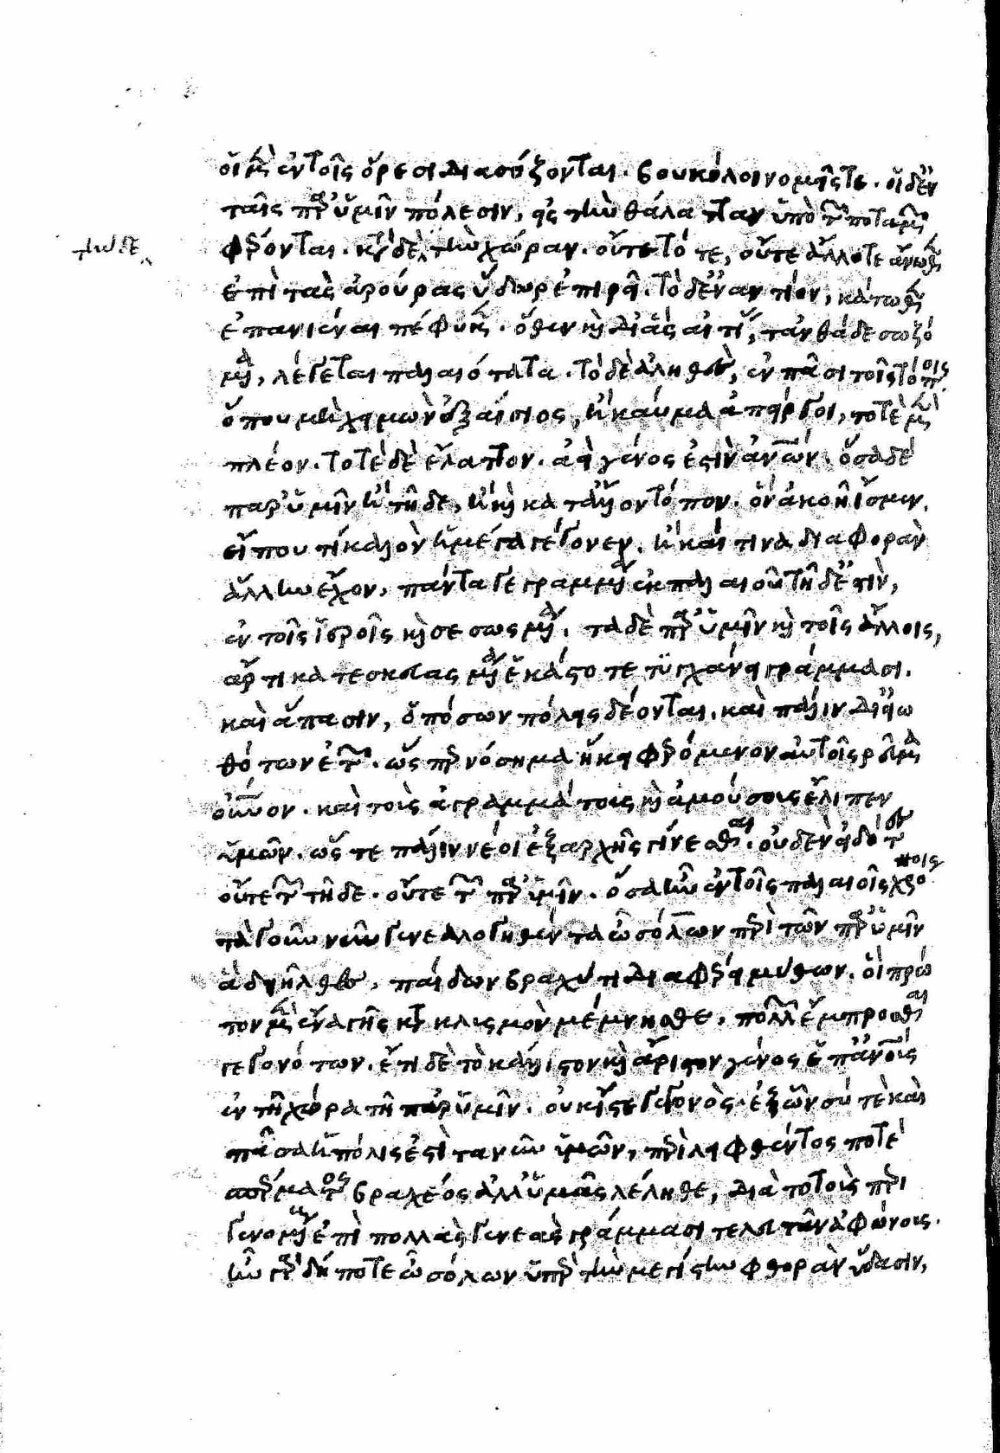 οἱ μὲν ἐν τοῖς ὄρεσι διασώζονται. βουκόλοι νομῆς τε. οἱ δ' ἐν
ταῖς παρ' ὑμῖν πόλεσιν, εἰς τὴν θάλατταν ὑπὸ τῶν ποταμῶν
φέρονται. κατὰ δὲ τὴν χώραν. οὔτε τότε, οὔτε ἄλλοτε ἄνωθεν
τήνδε
ἐπὶ τὰς ἀρούρας ὕδωρ ἐπιρεῖ. τὸ δ' ἐναντίον, κάτωθεν
ἐπανιέναι πέφυκεν. ὅθεν καὶ δι' ἃς αἰτίας, τἀνθάδε σωζό
μενα, λέγεται παλαιότατα. τὸ δὲ ἀληθὲς, ἐν πᾶσι τοῖς τόποις
ὅπου μὴ χειμὼν ἐξαίσιος, ἢ καύμα ἀπείργοι, τοτὲ μὲν
πλέον. τοτὲ δὲ ἔλαττον. ἀεὶ γένος ἐστὶν ἀνθρώπων. ὅσα δὲ
παρ' ὑμῖν ἢ τῇδε, ἢ καὶ κατ' ἄλλον τόπον. ὧν ἀκοῇ ἴσμεν.
εἴ που τί καλὸν ἢ μέγα γέγονεν. ἢ καί τινα διαφορὰν
ἄλλην ἔχον, πάντα γεγραμμένα ἐκ παλαιοῦ τῇδ' ἐστὶν,
ἐν τοῖς ἱεροῖς καὶ σεσωσμένα. τὰ δὲ παρ' ὑμῖν καὶ τοῖς ἄλλοις,
ἄρτι κατεσκευασμένα ἑκάστοτε τυγχάνει γράμμασι.
καὶ ἅπασιν, ὁπόσων πόλεις δέονται. καὶ πάλιν δι' εἰω
θότων ἐτῶν. ὥσπερ νόσημα ἥκει φερόμενον αὐτοῖς ρεῦμα
οὐράνιον. καὶ τοὺς ἀγραμμάτους καὶ ἀμούσους ἔλιπεν
ὑμῶν. ὥστε πάλιν νέοι ἐξ ἀρχῆς γίνεσθαι. οὐδὲν εἰδότες
οὔτε τῶν τῇδε. οὔτε τῶν παρ' ὑμῖν. ὅσα ἦν ἐν τοῖς παλαιοῖς χρόνοις
τὰ γοῦν νῦν γενεαλογηθέντα ὦ σόλων περὶ τῶν παρ' ὑμῖν
ἃ διῆλθες, παίδων βραχύ τι διαφέρει μύθων. οἳ πρῶ
τον μὲν ἕνα γῆς κατακλισμὸν μέμνησθε, πολλῶν ἔμπροσθεν
γεγονότων. ἔτι δὲ τὸ κάλλιστον καὶ ἄριστον γένος ἐπ' ἀνθρώποις
ἐν τῇ χώρα τῇ παρ' ὑμῖν. οὐκ ἴστε γεγονὸς. ἐξ ὧν σύ τε καὶ
πᾶσα ἡ πόλις ἐστὶ τανῦν ὑμῶν, περιλειφθέντος ποτὲ
σπέρματος βραχέος ἀλλ' ὑμᾶς λέληθε, διὰ τὸ τοὺς περι
γενομένους ἐπὶ πολλὰς γενεὰς γράμμασι τελευτᾶν ἀφώνους.
ἦν γὰρ δή ποτε ὦ σόλων ὑπὲρ τὴν μεγίστην φθορὰν ὕδασιν,